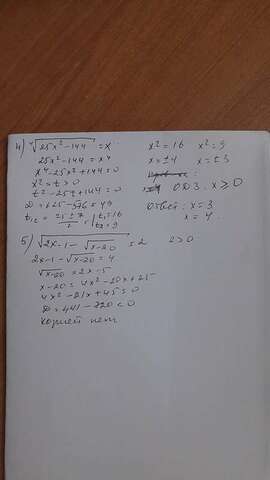 4) ⁴√25x²-144 = x
25x²-144 = x⁴
x⁴-25x²+144=0
x²=t>0
t²-25t+144=0
D=625-576=49
t₁,₂ = 25±7 / 2 = t₁=16 t₂=9
x²=16 x²=9
x=±4 x=±3
ОДЗ: x≥0
Ответ: x=3
x=4.
5) √2x-1-√x-20 = 2 2>0
2x-1-√x-20=4
√x-20=2x-5
x-20=4x²-20x+25
4x²-21x+45=0
D=441-720<0
корней нет